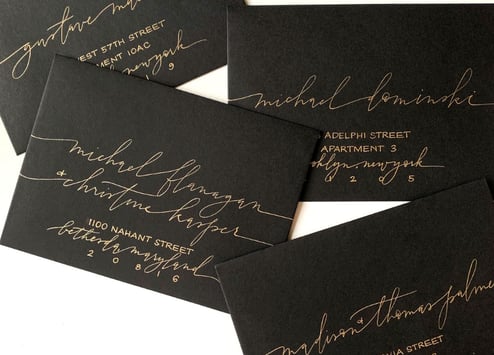 gustave
EST 57TH STREET
MENT 10AC
newyork
1 9
michael dominski
ADELPHI STREET
APARTMENT 3
oklyn, newyork
1 2 0 5
michael flanagan
& christine kasper
1100 NAHANT STREET
bethesda, maryland
2 0 8 1 6
madison & thomas palme
NIA STREET